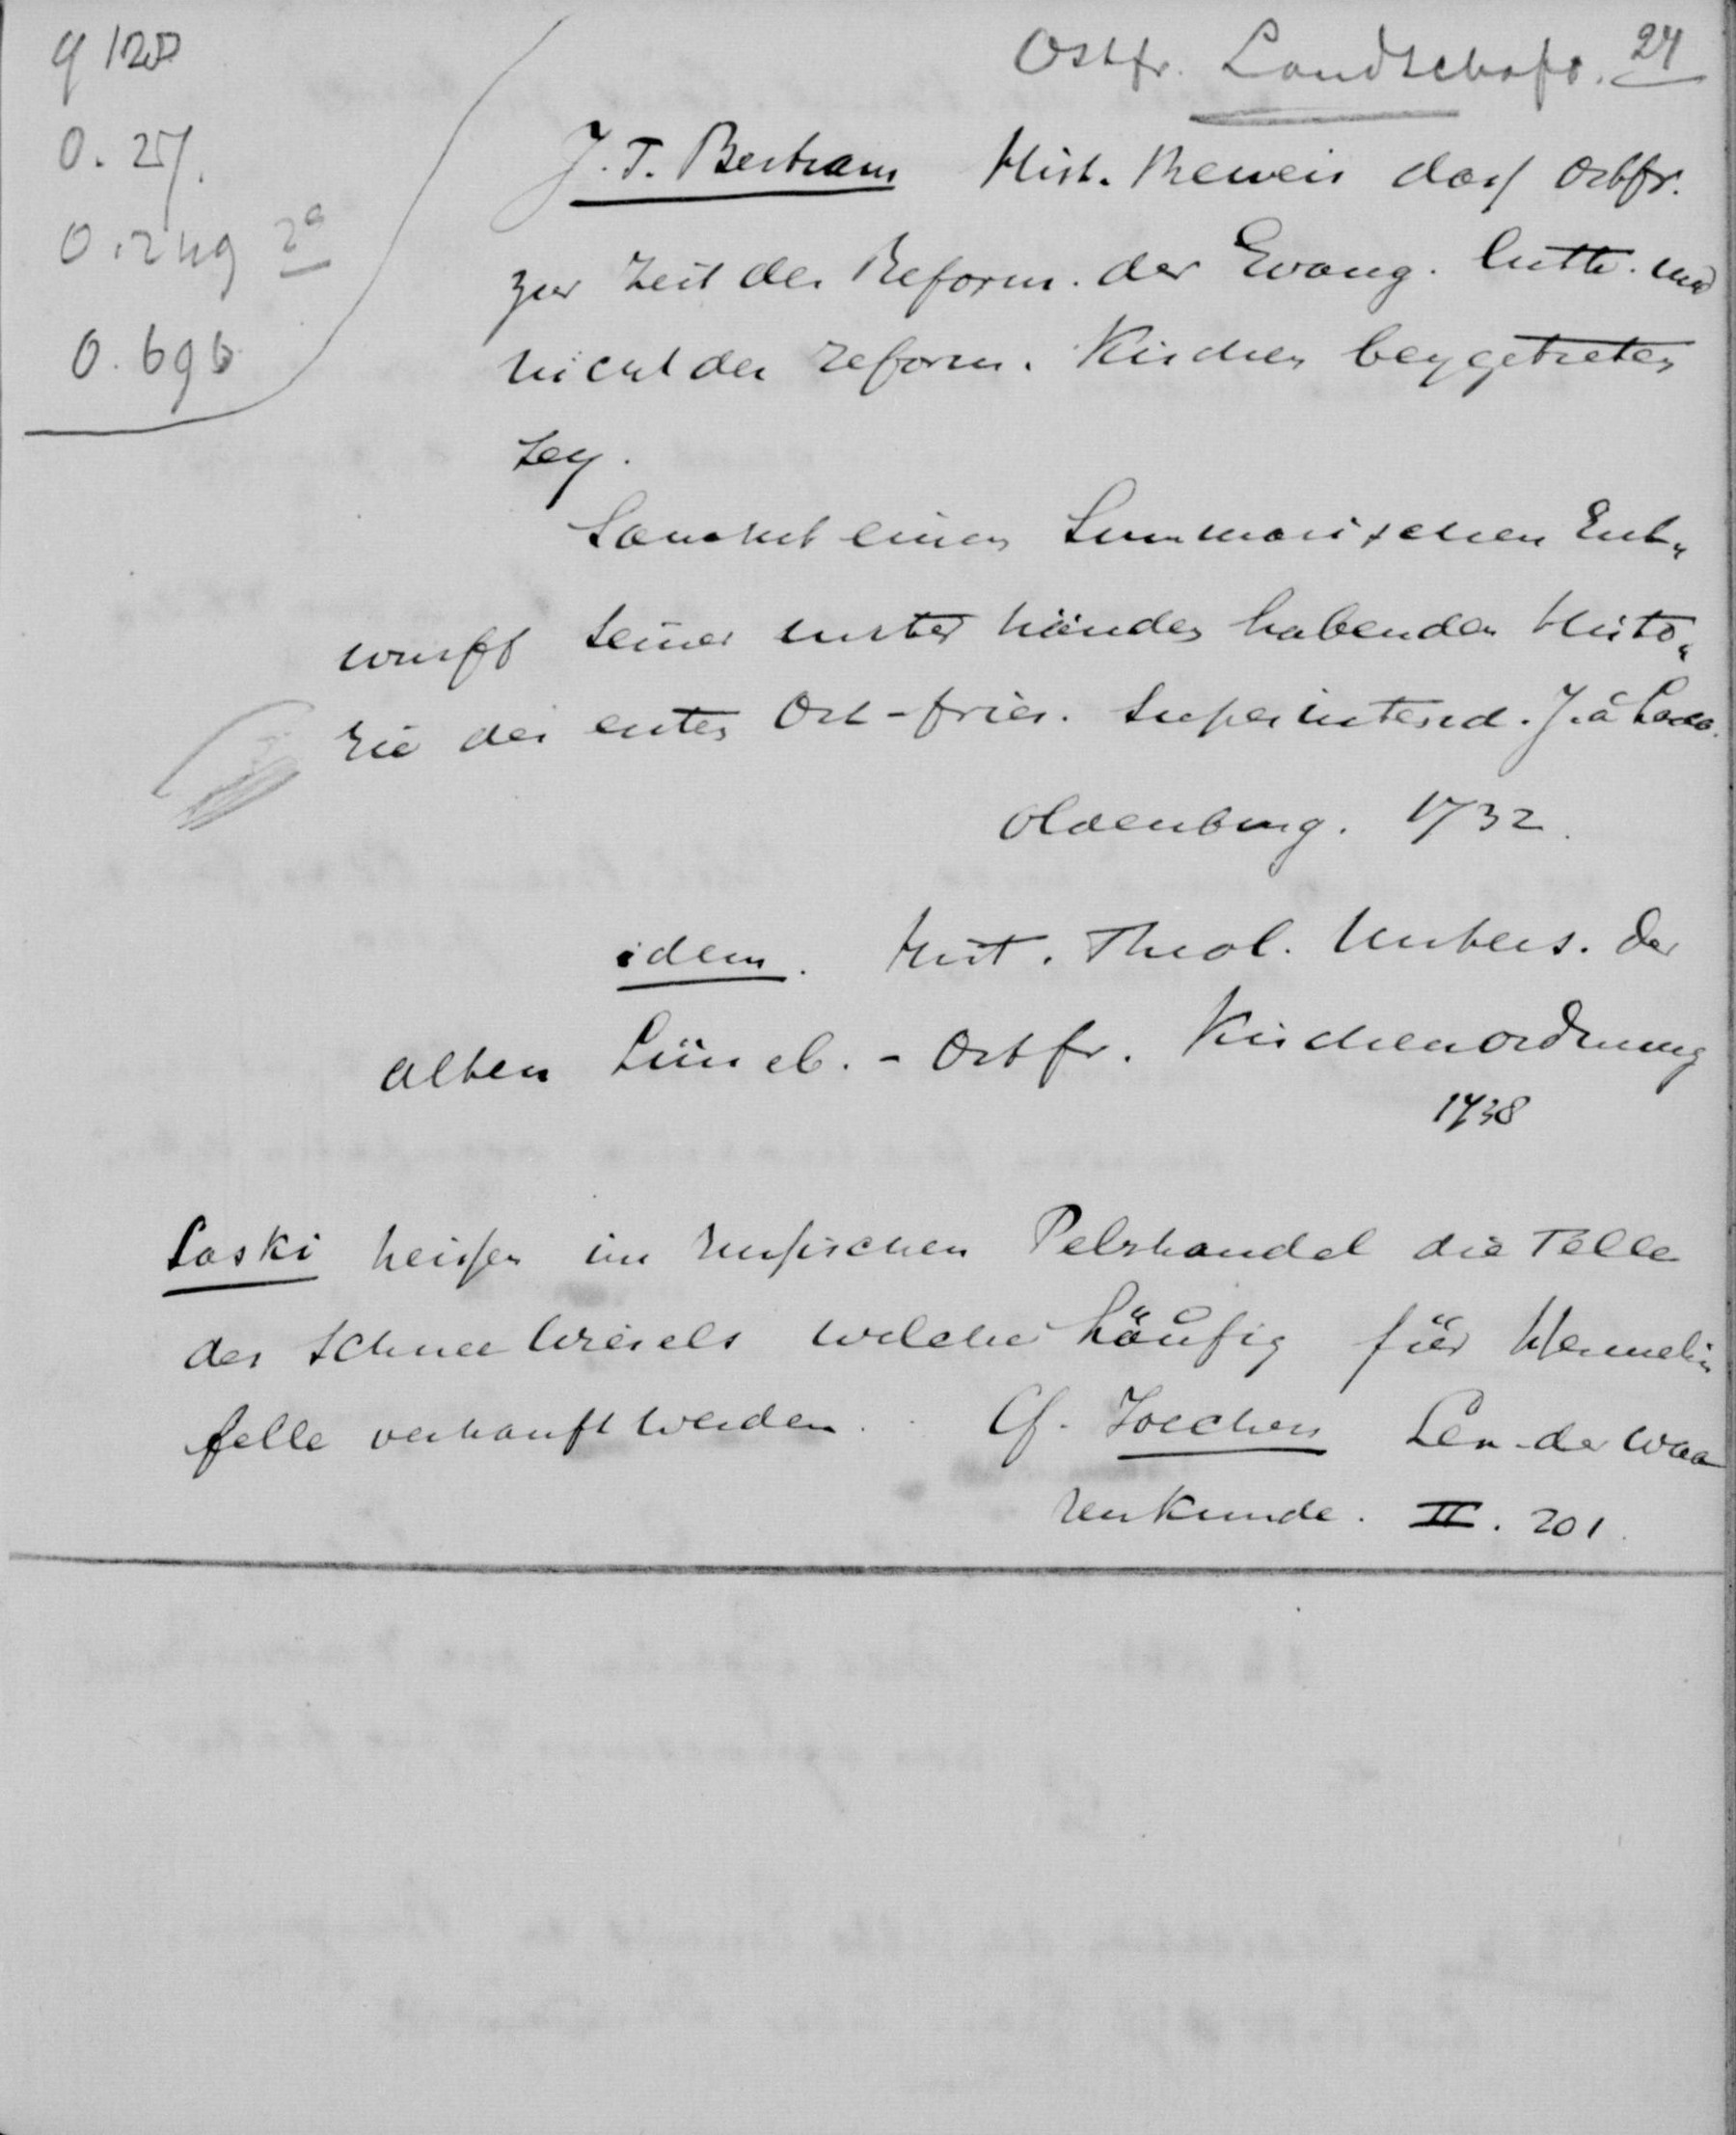 Ostfr. Landschaft. 24
q 120
O. 27.
O. 249 2a
O. 696
J. F. Bertram Hist. Beweis dass Ostfr.
zur Zeit der Reform. der Evang. luth. und
nicht der reform. Kirchen beygetreten
sey.
Sammt einen Summarischen Ent„
wurff seiner unter händen habenden Histo„
rie des ersten Ost-fries. Superintend. J. à Lasco.
Oldenburg. 1732.
idem. Hist. Theol. Unters. der
alten Lüneb. - Ostfr. Kirchenordnung
1738
Laski heissen im russischen Pelzhandel die Felle
des Schnee Wiesels welche häufig für Hermelin
felle verkauft werden. Cf. Lex. der Waa
renkunde. II. 201.